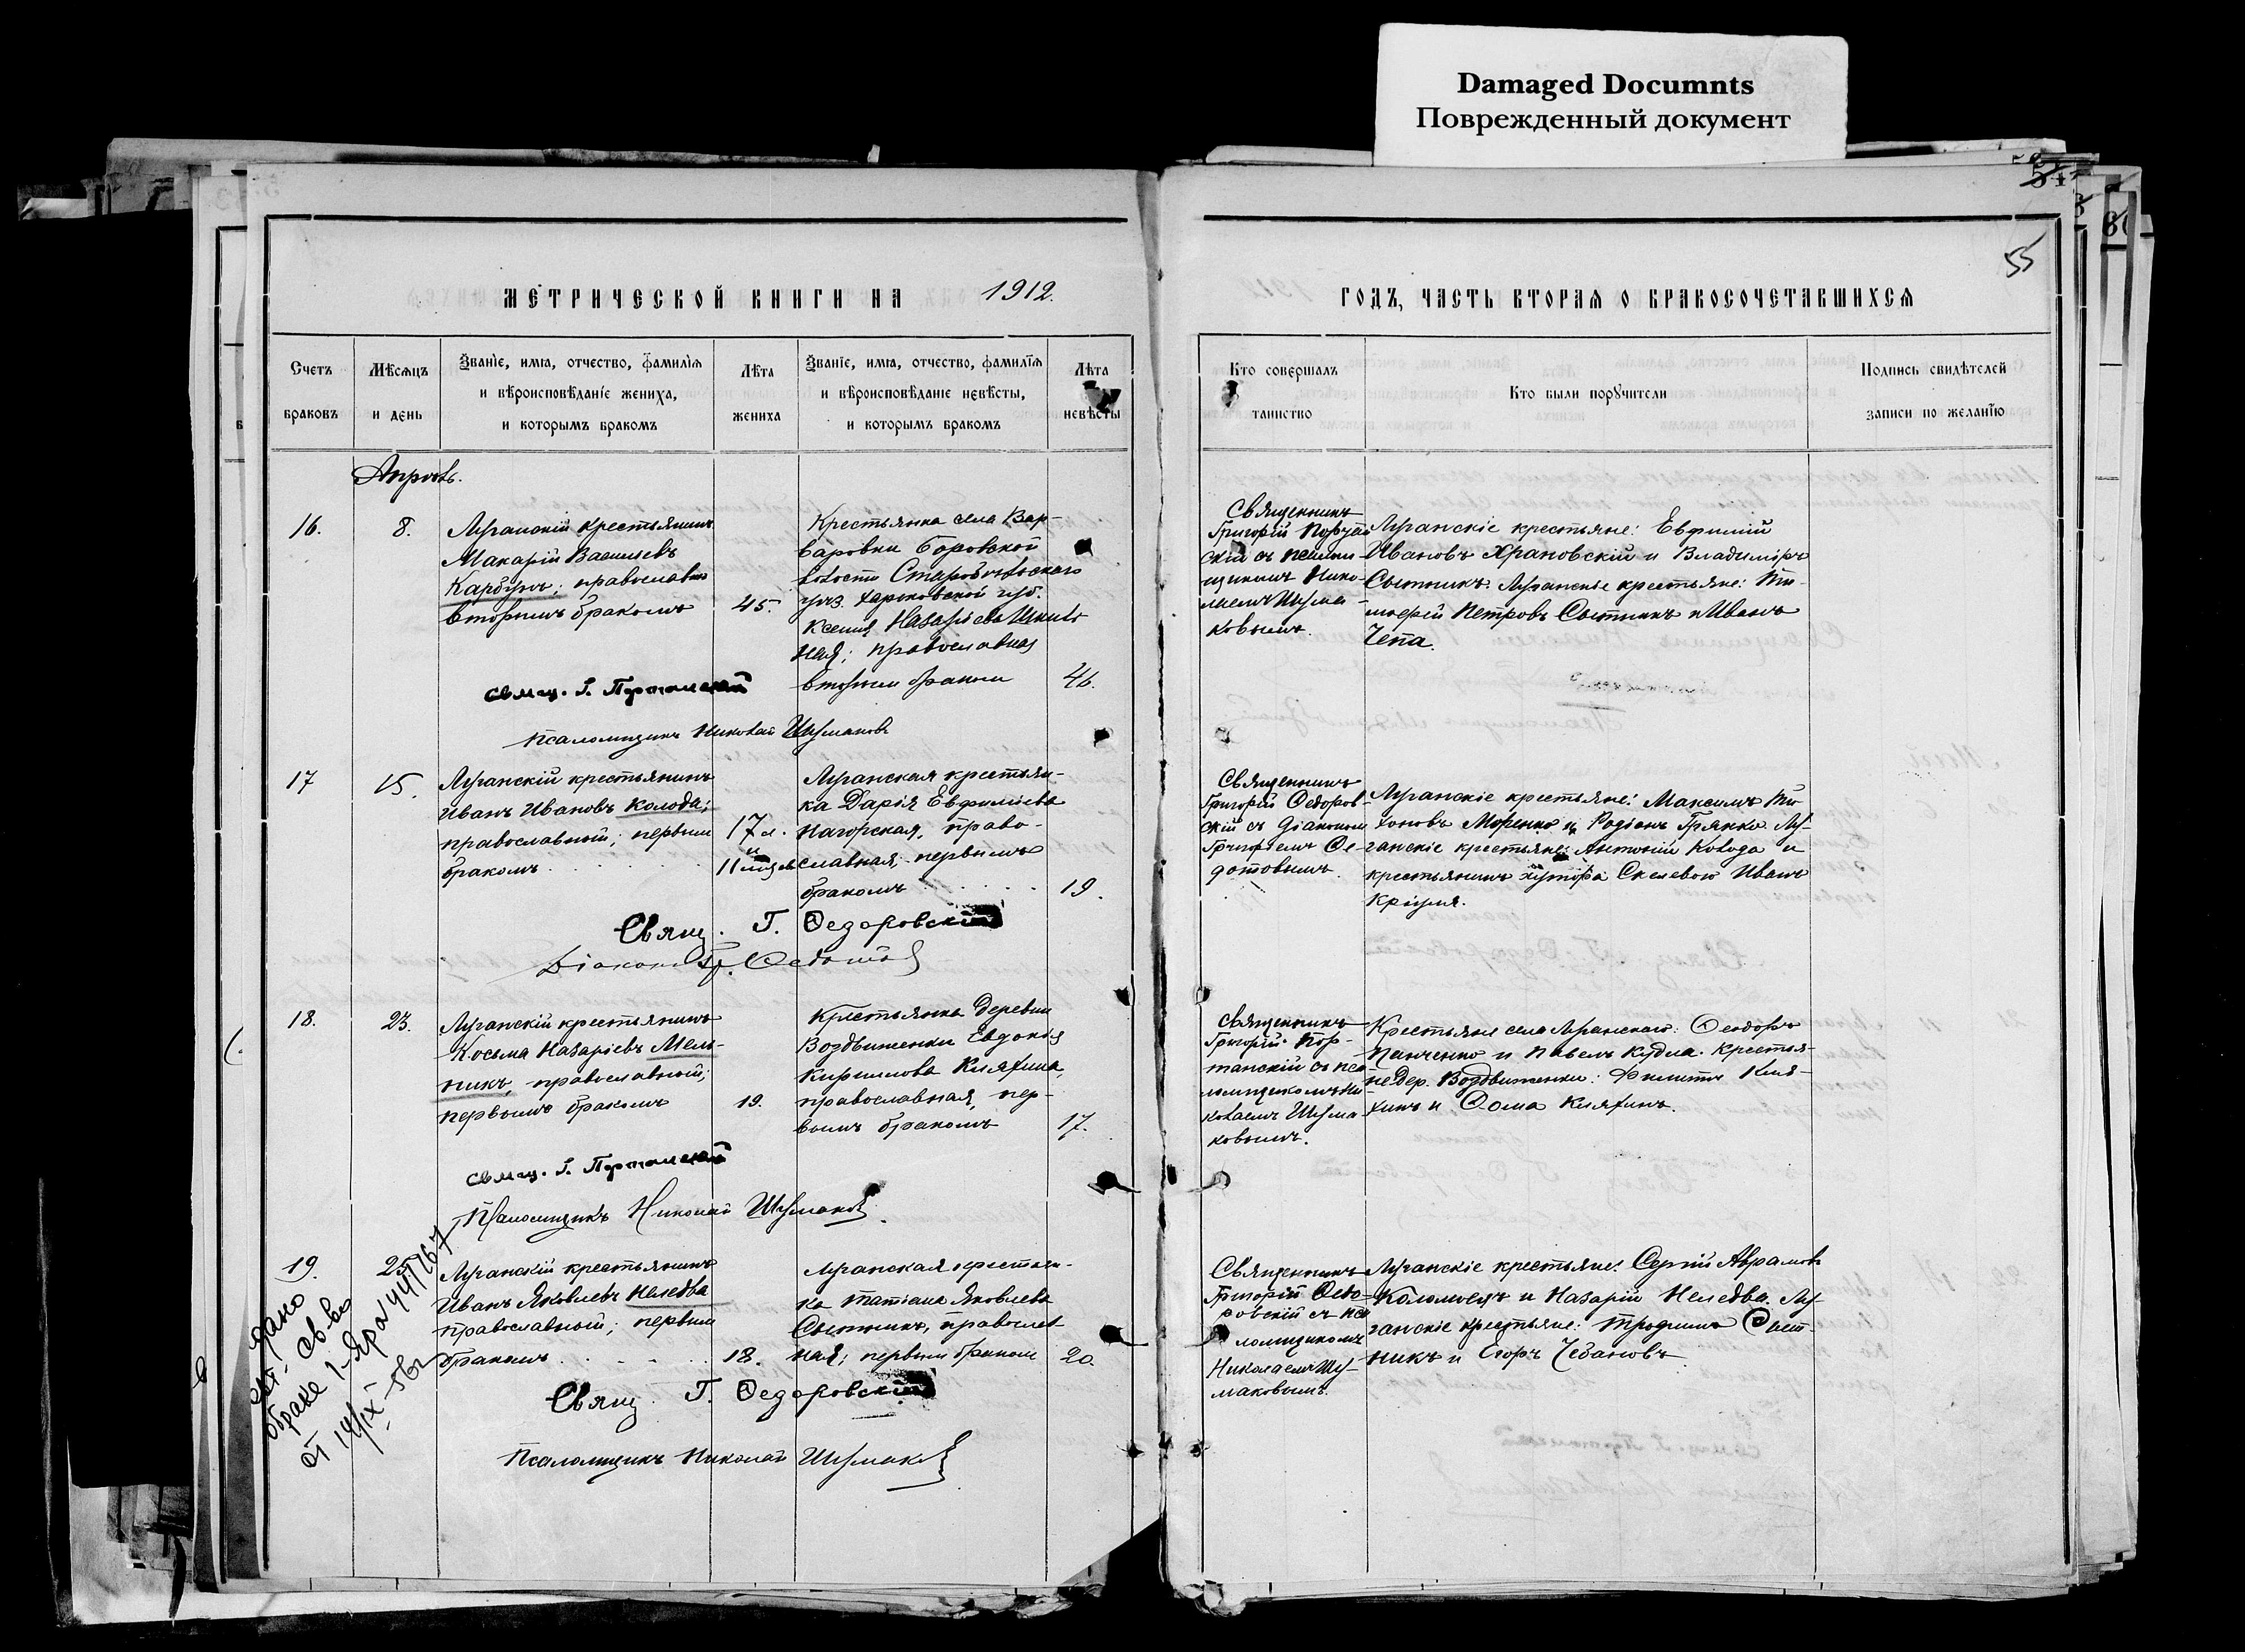 Damaged Documnts
Поврежденный документ
55
МЕТРИЧЕСКОЙ КНИГИ НА 1912.
ГОДЪ, ЧАСТЬ ВТОРАЯ О БРАКОСОЧЕТАВШИХСЯ
Счетъ браковъ
Мѣсяцъ и день
Званіе, имя, отчество, фамилія
и вѣроисповѣданіе жениха,
и которымъ бракомъ
Лѣта жениха
Званіе, имя, отчество, фамилія
и вѣроисповѣданіе невѣсты,
и которымъ бракомъ
Лѣта невѣсты
Кто совершалъ таинство
Кто были поручители
Подпись свидѣтелей
записи по желанію
Апрѣль.
16.
8.
Луганскій крестьянинъ
Макарій Васильевъ
православн
вторымъ бракомъ
45.
Крестьянка села Вар-
варовки Боровской
волости Старобѣльскаго
уѣз. Харьковской губ.
Ксенія Назарієва
ная; православная
вторым браком
46.
Священникъ
Григорій
скій съ псалом
щикомъ Нико-
лаемъ Шума-
ковымъ.
Луганскіе крестьяне: Евфимій
Ивановъ Храновскій и Владиміръ
Сытникъ. Луганскіе крестьяне: Ти-
мофей Петровъ Сытникъ и Иванъ
Чепа.
Свящ. Г. Портанскій
Псаломщикъ Николай Шумаковъ
17
15.
Луганскій крестьянинъ
Иванъ Ивановъ Колода;
православный; первым
бракомъ
17 л.
и
11 мѣс
Луганская крестьян-
ка Дарія Евфиміева
Нагорская, право-
славная; первымъ
бракомъ
19.
Священникъ
Григорій Федоров-
скій съ діаконом
Григоріемъ Фе-
дотовымъ.
Луганскіе крестьяне: Максимъ Ти-
хоновъ Моренко и Родіонъ Грянко. Лу-
ганскіе крестьяне: Антоній Колода и
крестьянинъ хутора Иванъ
Свящ. Г. Федоровскій
Діаконъ Гр. Федотов
18.
23.
Луганскій крестьянинъ
Косьма Назаріевъ Мель-
никъ, православный;
первымъ бракомъ
19.
Крестьянка деревни
Воздвиженки Евдокія
Кириллова Кияхина,
православная, пер-
вымъ бракомъ
17.
Священникъ
Григорій Пор-
танскій съ пса
ломщикомъ Ни
колаемъ Шума-
ковымъ.
Крестьяне села Луганскаго: Феодоръ
Панченко и Павелъ Кудла. Крестья-
не дер. Воздвиженки: Филиппъ Кия-
хинъ и Фома Кияхинъ.
Свящ. Г. Портанскій
Псаломщикъ Николай Шумаков
19.
25.
Луганскій крестьянинъ
Иванъ Яковлевъ Неледва
православный; первым
бракомъ
18.
Луганская крестьян-
ка Татіана Яковлева
Сытникъ, православ
ная; первым браком
20.
Священникъ
Григорій Федо-
ровскій съ пса
ломщикомъ
Николаемъ Шу-
маковымъ.
Луганскіе крестьяне: Сергій Аврамовъ
Коломоецъ и Назарій Неледва. Лу-
ганскіе крестьяне: Трофимъ Сыт-
никъ и Егоръ Чебановъ.
Свящ. Г. Федоровскій
Псаломщикъ Николай Шумаков
дано
св-во
о браке